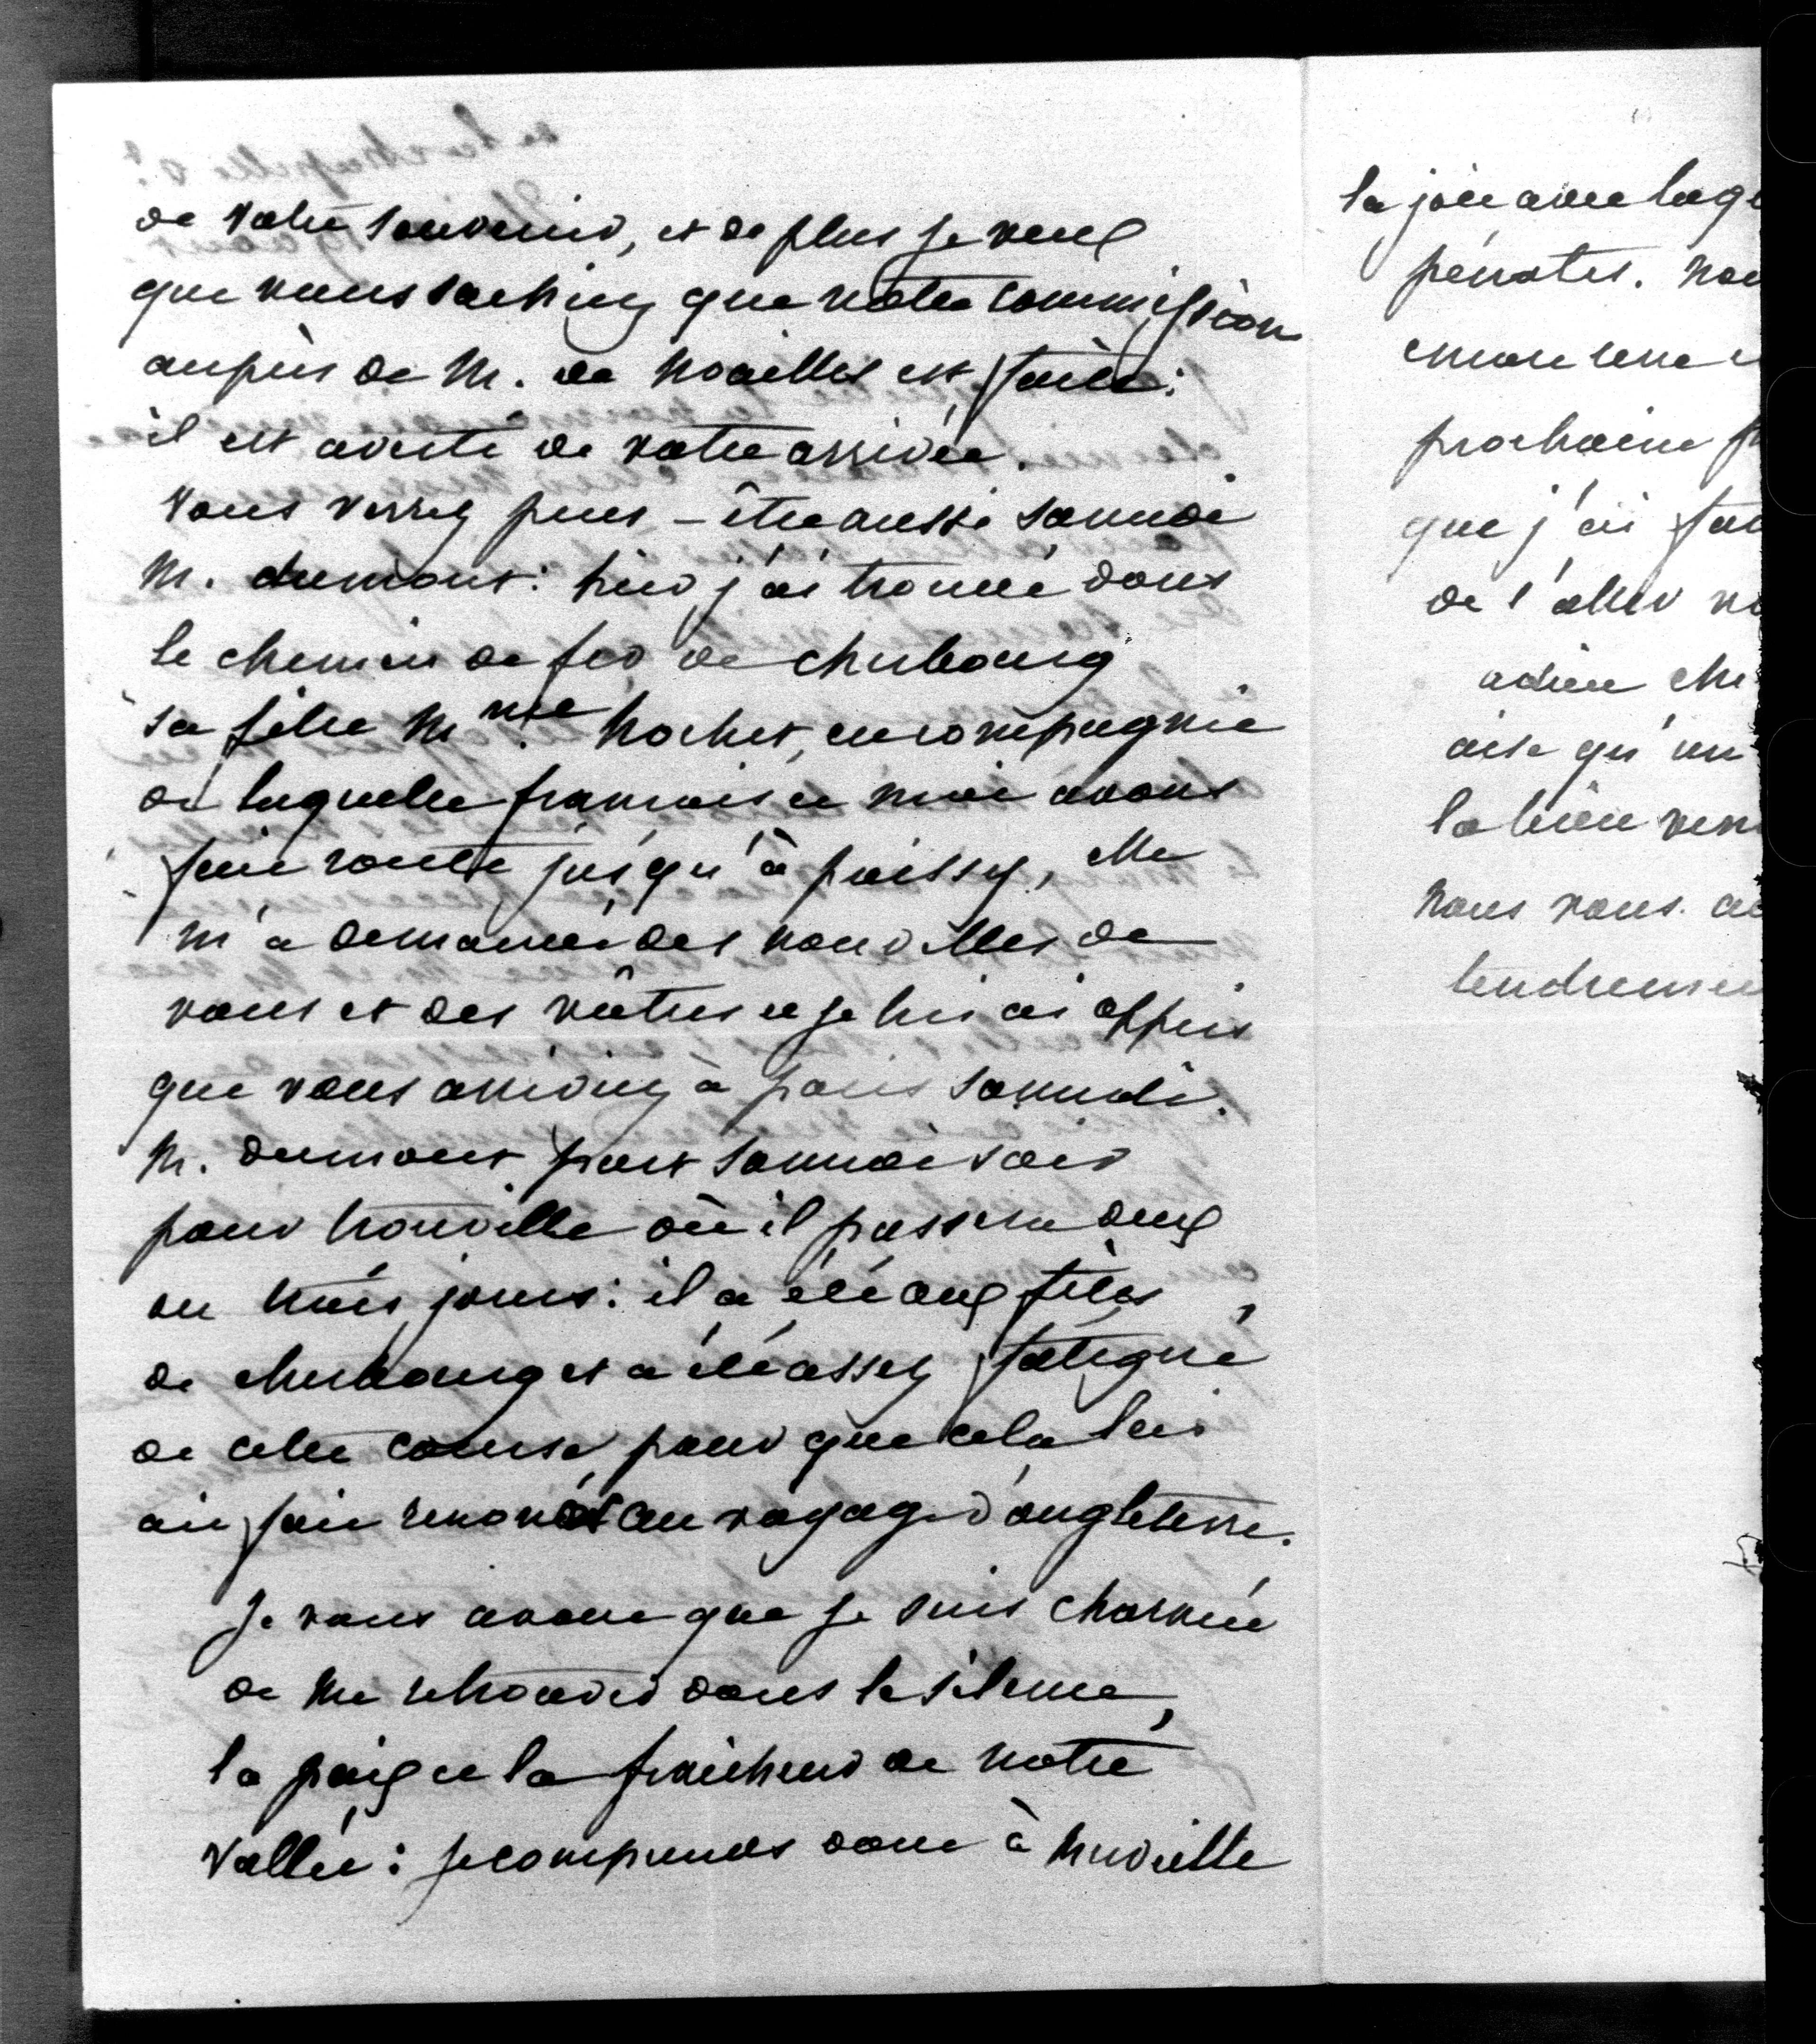 de votre souvenir, et de plus je veux
que vous sachiez que votre commission
auprès de M. de Noailles est faite:
il est averti de votre arrivée.
Vous verrez peut-être aussi samedi
M. dumont: hier j'ai trouvé dans
le chemin de fer de cherbourg
sa fille Mme hochet, en compagnie
de laquelle françoise et moi avons
fait route jusqu'à poissy, elle
m'a demandé des nouvelles de
vous et des vôtres et je lui ai appris
que vous arriviez à paris samedi.
M. dumont part samedi soir
pour trouville où il passera deux
ou trois jours: il a été aux fêtes
de cherbourg et a été assez fatigué
de cette course pour que cela lui
ait fait renoncer au voyage d'angleterre.
Je vous avoue que je suis charmée
de me retrouver dans le silence,
la paix et la fraicheur de notre
vallée: je comprends donc à merveille
la joie avec laq
pénates. nou
encore une
prochaine
que j'ai fai
de l'aller
adieu che
aise qu'un
la bien ven
nous vous
tendremen